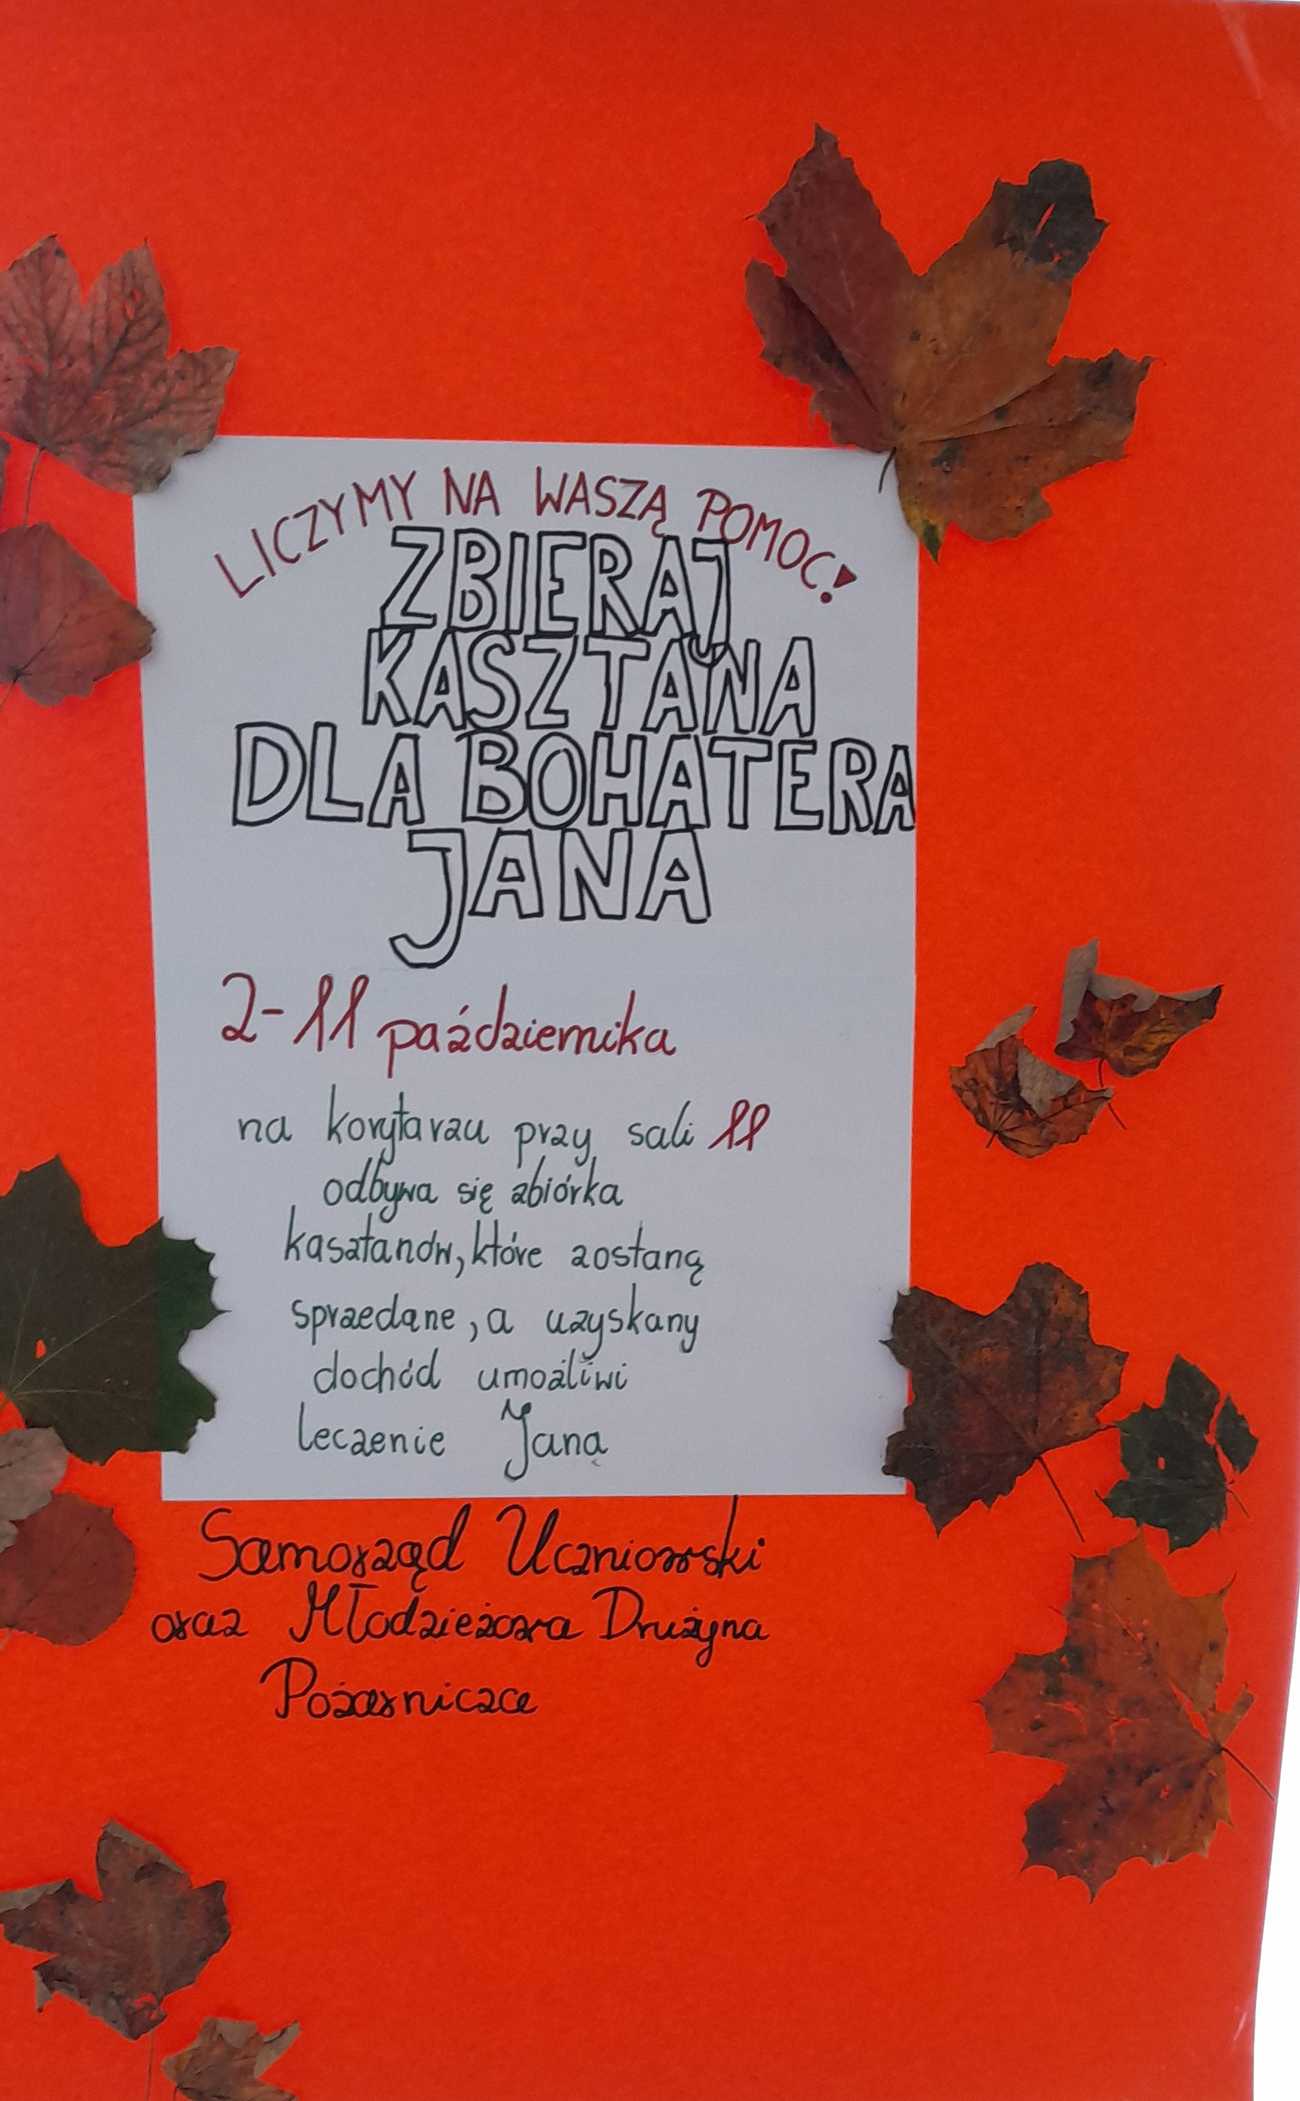 LICZYMY NA WASZĄ POMOC!
ZBIERAJ
KASZTANA
DLA BOHATERA
JANA
2-11 października
na korytarzu przy sali 11
odbywa się zbiórka
kasztanów, które zostaną
sprzedane, a uzyskany
dochód umożliwi
leczenie Jana
Samorząd Uczniowski
oraz Młodzieżowa Drużyna
Pożarnicza